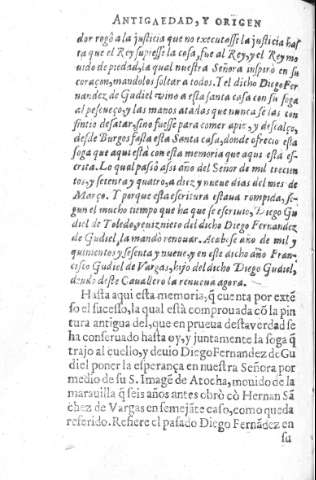 ANTIGAEDAD, Y ORIGEN
dor rogò a la justicia que no executasse la justicia has
ta que el Rey supiesse la cosa, fue al Rey, y el Rey mo
uido de piedad, la qual nuestra Señora inspirò en su
coraçon, mandolos soltar a todos. Y el dicho Diego Fer
nandez de Gudiel vino a esta santa casa con su soga
al pescueço, y las manos atadas que nunca se las con
sintio desatar, sino fuesse para comer a pie, y descalço,
desde Burgos fasta esta Santa casa, donde ofrecio esta
soga que aqui està con esta memoria que aqui està es-
crita. Lo qual pasiò assi año del Señor de mil trecien
tos, y setenta y quatro, a diez y nueue dias del mes de
Março. Y porque esta escritura estaua rompida, se-
gun el mucho tiempo que ha que se escriuio, Diego Gu
diel de Toledo, reuiznieto del dicho Diego Fernandez
de Gudiel, la mandò renouar. Acabose año de mil y
quinientos y sesenta y nueue, y en este dicho año Fran-
cisco Gudiel de Vargas, hijo del dicho Diego Gudiel,
deudo deste Cauallero la renueua agora.
Hasta aqui esta memoria, q̃ cuenta por extẽ
so el sucesso, la qual està comprouada cõ la pin
tura antigua del, que en prueua desta verdad se
ha conseruado hasta oy, y juntamente la soga q̃
trajo al cuello, y deuio Diego Fernandez de Gu
diel poner la esperança en nuestra Señora por
medio de su S. Imagẽ de Atocha, mouido de la
marauilla q̃ seis años antes obrò cõ Hernan Sã
chez de Vargas en semejãte caso, como queda
referido. Refiere el pasado Diego Fernãdez en
su